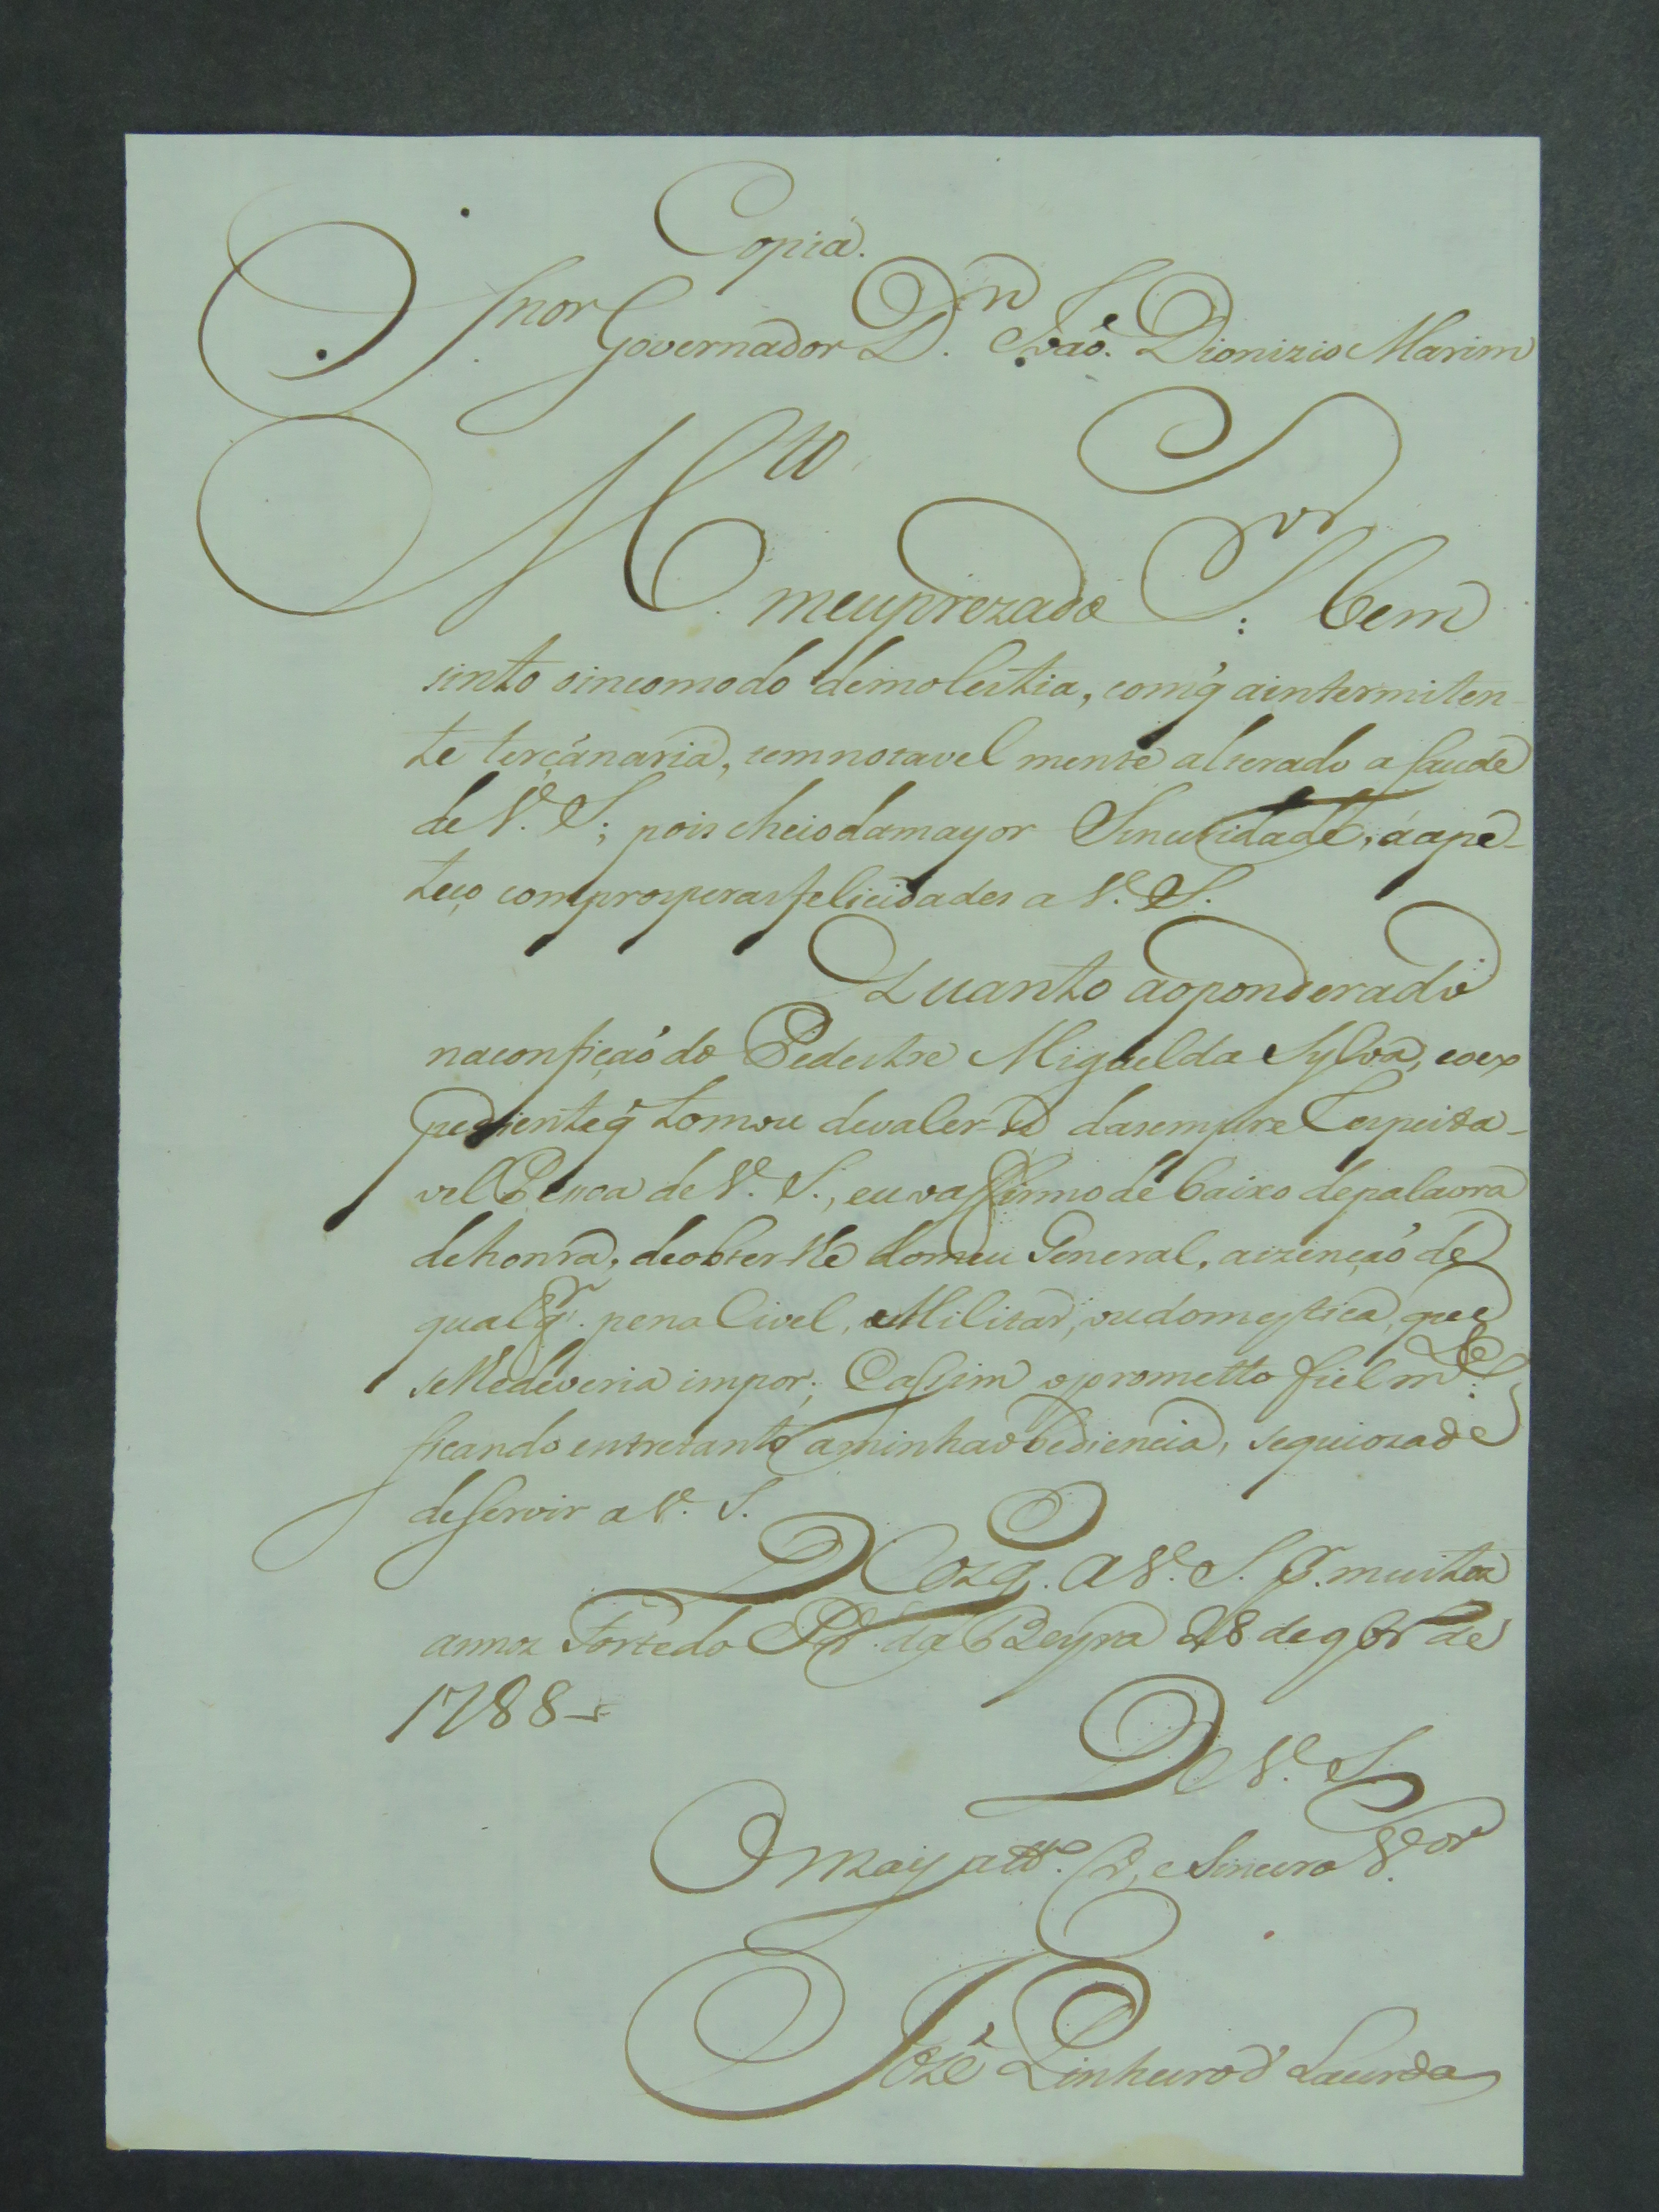 Copia.
Snor Governador D.n João Dionizio Marim
M.to
meu prezado S.or: bem
sinto o incomodo de molestia, com q̃ a intermiten-
te terçánaria, tem notavel mente alterado a saude
de V. S.; pois cheio da mayor Sinceridade, á ape-
teço com prosperas felicidades a V. S.
Quanto ao ponderado
na confiçaõ do Pedestre Miguel da Sylva, e o ex
pediente q̃ tomou de valer-se da sempre Respeita-
vel de V. S., eu o affirmo de baixo de palavra
de honra, de obter-lhe do meu General, a izençaõ de
qualq.r pena Civel, Militar, ou domestica, que
se lhe deveria impor; E assim o prometto fielm.te:
ficando entretanto a minha obediencia, sequioza de
de servir a V. S.
D.s g. a V. S. p.r muitos
annos Forte do P.e da Beyra 28 de 9br.o de
1788
De V. S.
O mais att.o V. e Sincero V.or
Jozé Pinheiro d' Lacerda